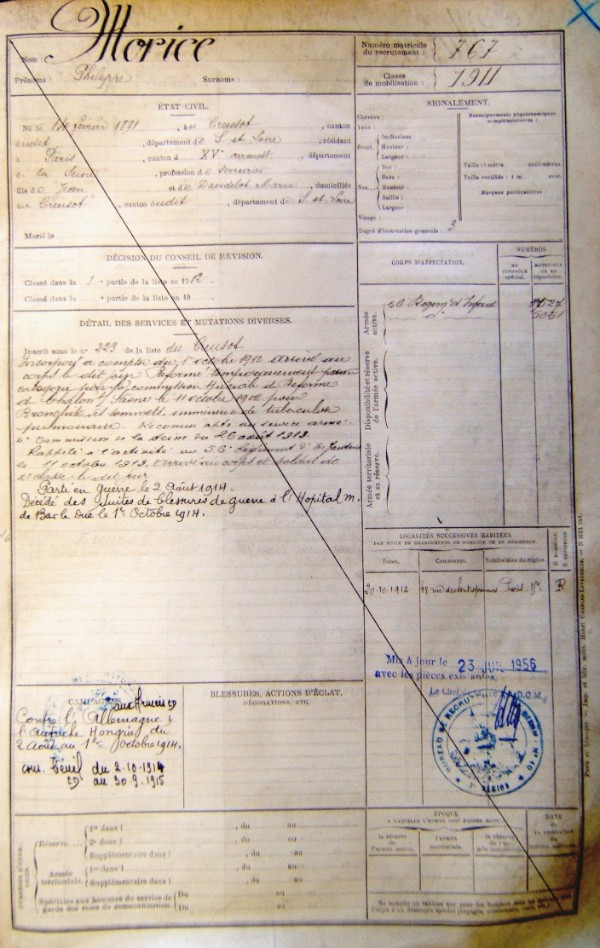 Nom : Morice
Prénoms : Philippe Surnoms :
Numéro matricule du recrutement : 767
Classe de mobilisation : 1911
ÉTAT CIVIL.
Né le février 1891, au Creusot, canton
dudit, département de S. et Loire, résidant
à Paris, canton d XVe arrondt, département
de la Seine, profession de serrurier
fils de Jean et de Dandelot Marie, domiciliés
au Creusot, canton dudit, département de S. et Loire
Marié le
SIGNALEMENT.
Cheveux :
Yeux :
Front. Inclinaison :
Hauteur :
Largeur :
Nez. Dos :
Base :
Hauteur :
Saillie :
Largeur :
Visage :
Renseignements physionomiques complémentaires :
Taille : 1 mètre centimètres.
Taille rectifiée : 1 m. cent.
Marques particulières
Degré d'instruction générale : 2
DÉCISION DU CONSEIL DE RÉVISION.
Classé dans la 1e partie de la liste en 1912
Classé dans la e partie de la liste en 19
CORPS D'AFFECTATION.
NUMÉROS
AU CONTRÔLE SPÉCIAL.
MATRICULE OU AU RÉPERTOIRE.
Armée active.
56 Régimt d'Infant
Disponibilité et réserve de l'armée active.
Armée territoriale et sa réserve.
DÉTAIL DES SERVICES ET MUTATIONS DIVERSES.
Inscrit sous le n° 223 de la liste du Creusot
Incorporé à compter du octobre 1912 arrivé au
corps le dit jour Réformé temporairement
catégorie par la commission spéciale de Réforme
de Chalon s/ Saône le 11 octobre 1912 pour
Bronchite et sommets imminence de tuberculose
pulmonaire. Reconnu apte au service armé
Commission de la Seine du 26 août 1913.
Rappelé à l'activité au 56e Régiment d'Infanterie
le 11 octobre 1913. Arrivé au corps et soldat de
2e classe le dit jour
Parti en guerre le 2 Août 1914.
Décédé des suites de blessures de guerre à l'Hopital m.
de Bar le Duc le 1er Octobre 1914.
LOCALITÉS SUCCESSIVES HABITÉES
PAR SUITE DE CHANGEMENTS DE DOMICILE OU DE RÉSIDENCE.
Dates. Communes. Subdivision de région. D domicile. R résidence.
20-10-1912 98 rue des Entrepreneurs Paris R
Mis à jour le 23 JUIL 1956
avec les pièces existantes.
BUREAU DE RECRUTEMENT
CAMPAGNES
aux Armées CD
Contre l'Allemagne &
l'Autriche Hongrie du
2 Août au 1er Octobre 1914.
Deuil du 2.10.1914
CD au 30.9.1915
BLESSURES, ACTIONS D'ÉCLAT,
DÉCORATIONS, ETC.
Réserve.
1er dans l , du au
2e dans l , du au
Supplémentaire dans l , du au
Armée territoriale.
1er dans l , du au
Supplémentaire dans l , du au
Spéciales aux hommes du service de garde des voies de communication
Du au
Du au
ÉPOQUE
À LAQUELLE L'HOMME DOIT PASSER DANS
la réserve de l'armée active.
l'armée territoriale.
la réserve de l'armée territoriale.
DATE